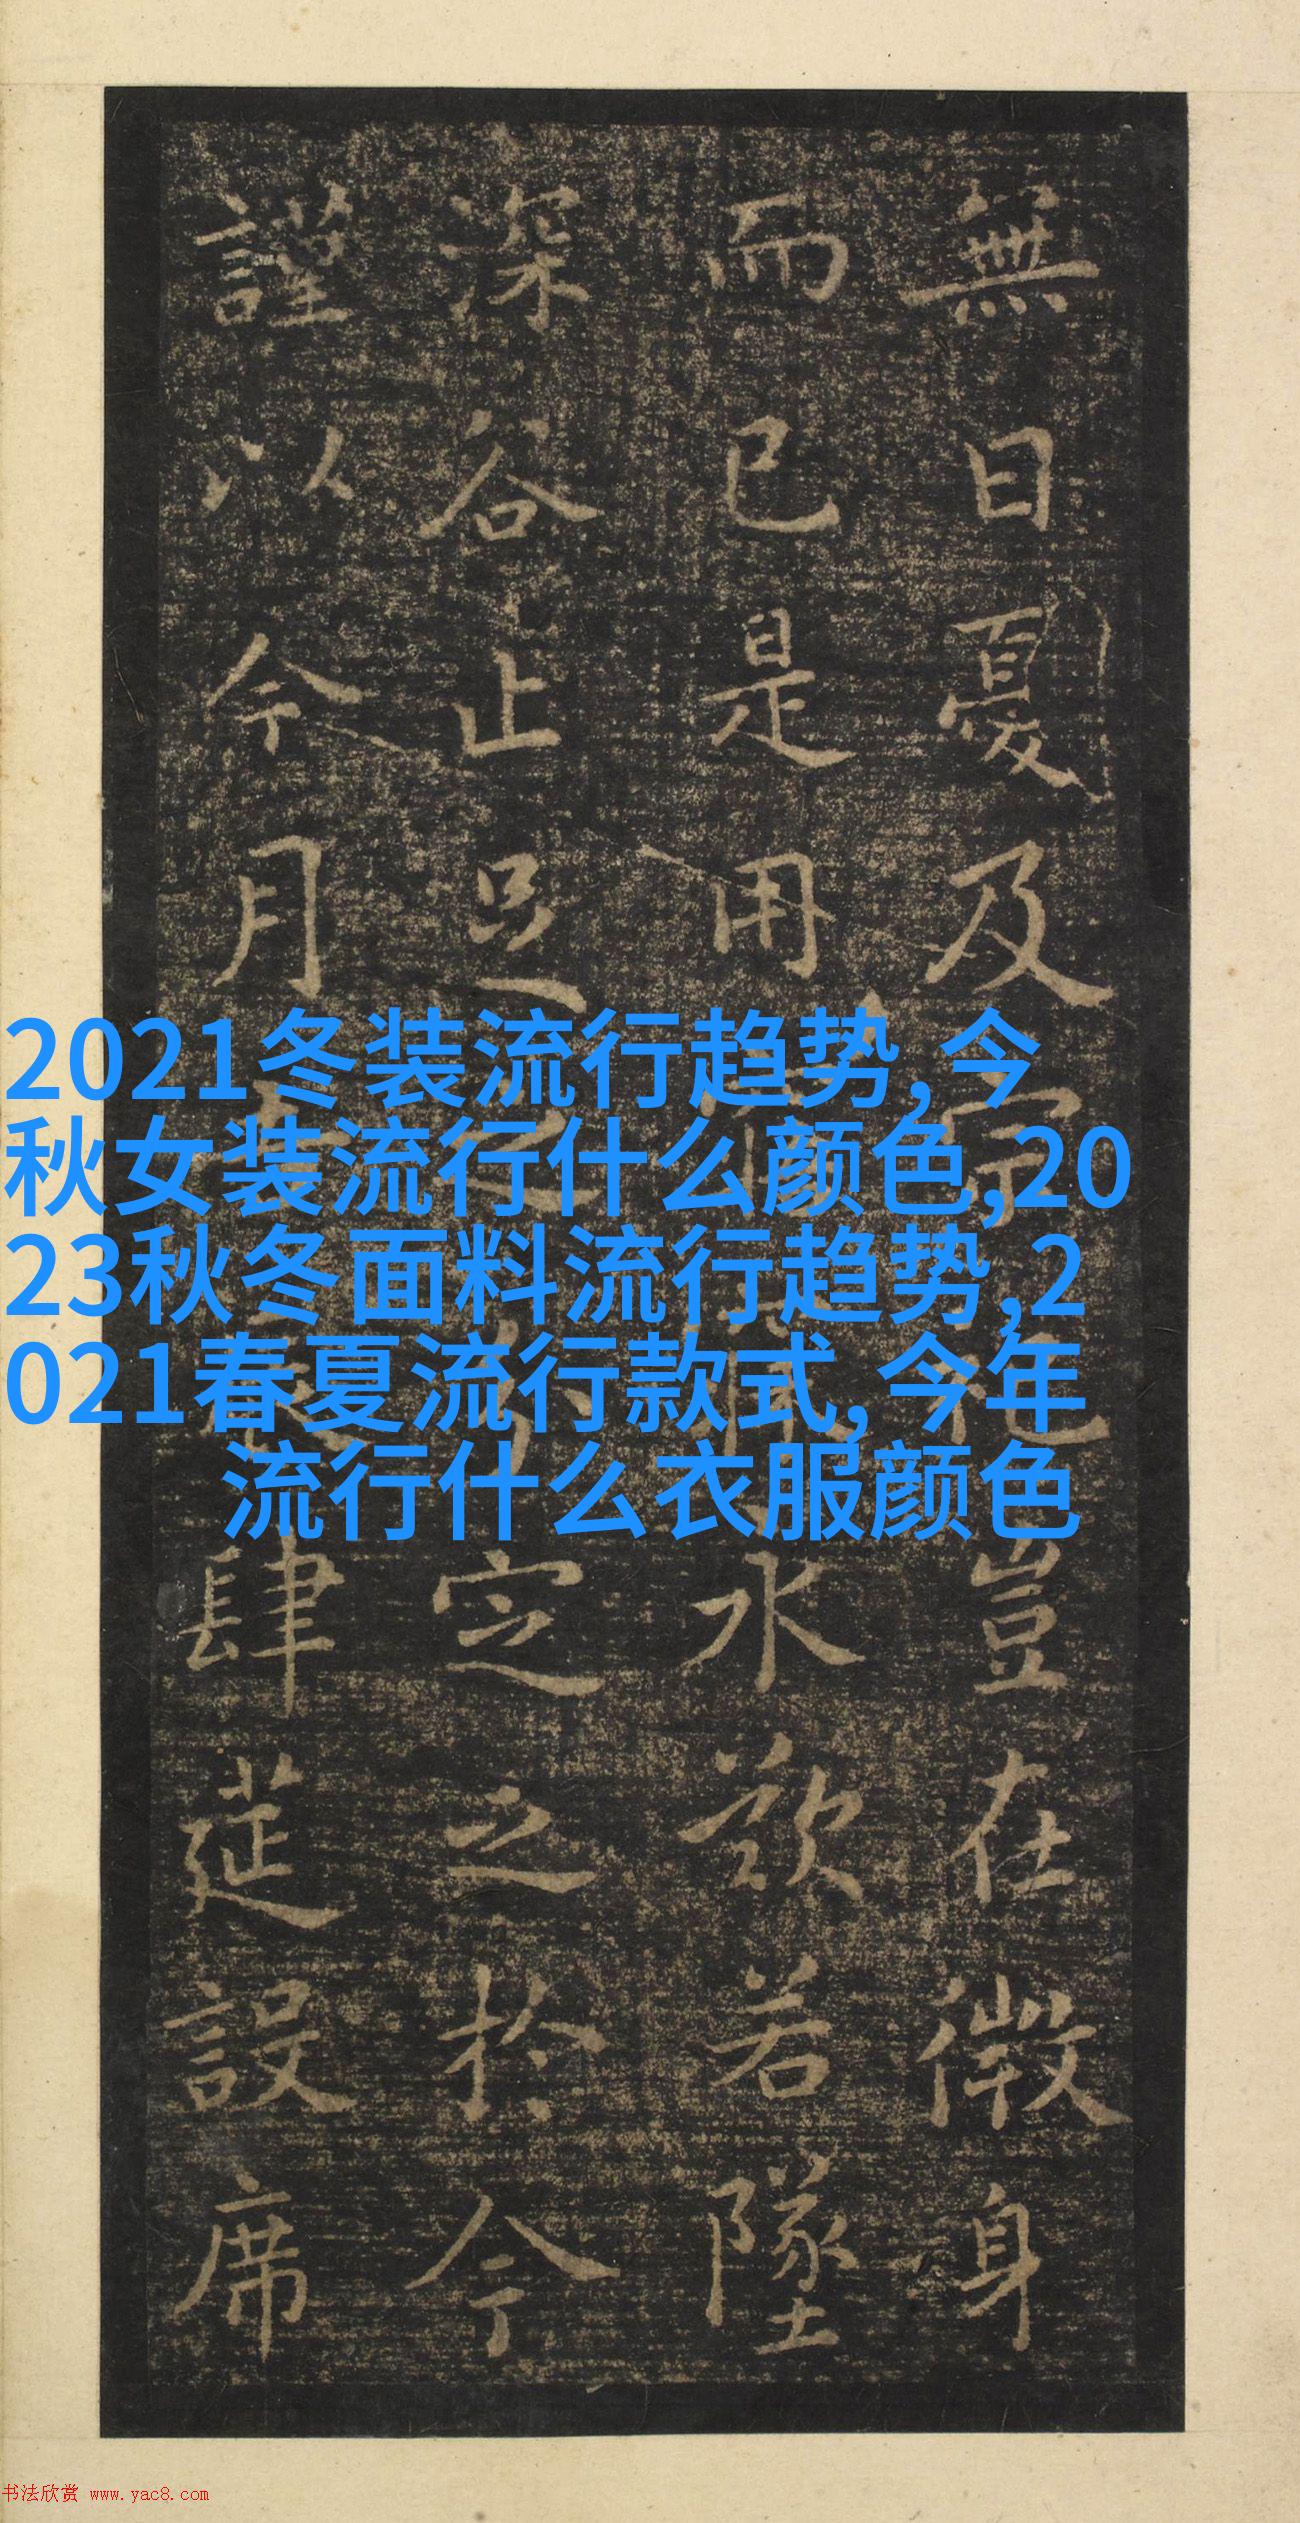 無日憂及豈在微身
而已是用水欲若墜
深谷止足之定之於今
謹以今月肆莚設席
2021冬装流行趋势,今
秋女装流行什么颜色,20
23秋冬面料流行趋势,2
021春夏流行款式, 今年
流行什么衣服颜色
书法欣赏 www.yac8.com